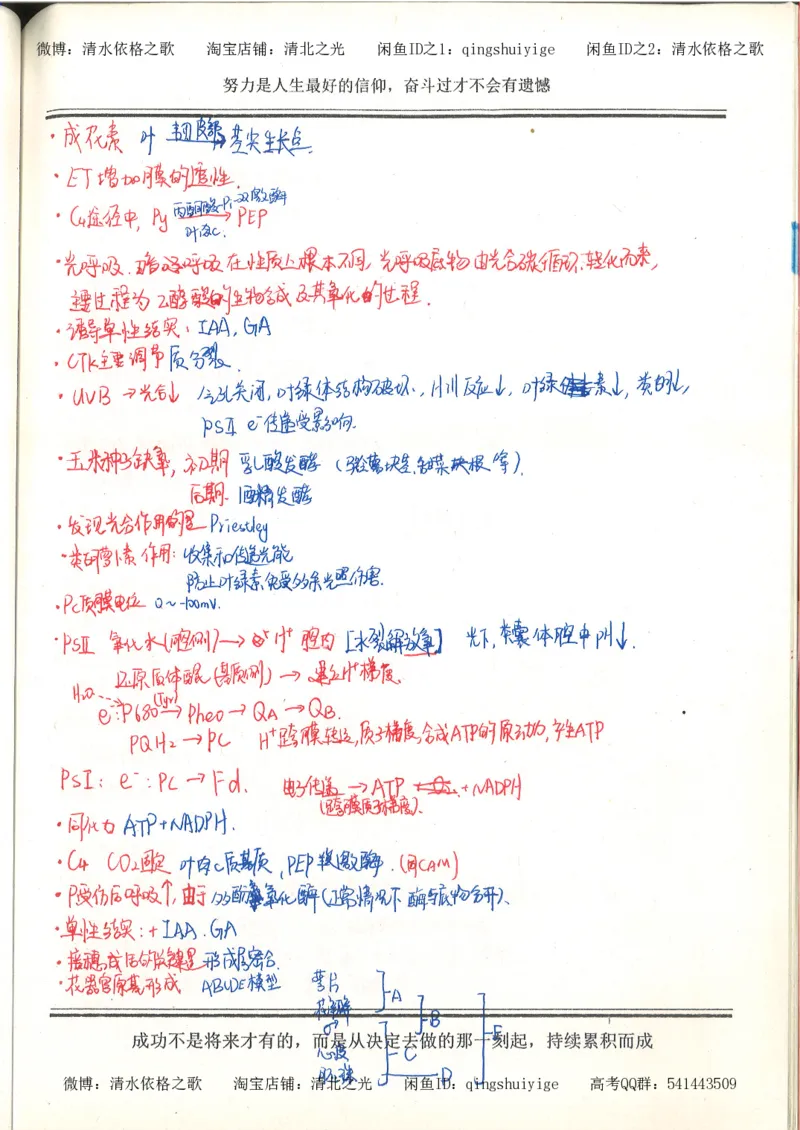 微博：清水依格之歌 淘宝店铺：清北之光 闲鱼ID之1：qingshuiyige 闲鱼ID之2：清水依格之歌
努力是人生最好的信仰，奋斗过才不会有遗憾
·成花素 叶 韧皮部→茎尖生长点.
·ET增加膜的透性.
·C4途径中, Py 丙酮酸-Pi-双激酶→ PEP
叶肉C.
·光呼吸.暗呼吸在性质上根本不同, 光呼吸底物由光合碳循环转化而来,
主要过程为乙醇酸的生物合成及其氧化的过程.
·诱导单性结实: IAA, GA
·CTK主要调节质分裂.
·UVB → 光合↓ 气孔关闭, 叶绿体结构破坏, Hill反应↓, 叶绿素↓, 类胡↓,
PSII e⁻传递受影响.
·玉米种子缺氧, 初期 乳酸发酵 (马铃薯块茎、甜菜块根等).
后期. 酒精发酵
·发现光合作用的是 Priestley
·类胡萝卜素 作用: 收集和传递光能
防止叶绿素免受多余光照伤害.
·PC质膜电位 0~-100mV.
·PSII 氧化水(腔侧) → H⁺ 腔内 [水裂解放氧] 光下, 类囊体腔中pH↓.
还原质体醌(基质侧) → 建立H⁺梯度.
H₂O (Tyr)
e⁻: P680 → Pheo → QA → QB.
PQH₂ → PC H⁺跨膜转运, 质子梯度, 合成ATP的原动力, 产生ATP
PSI: e⁻: PC → Fd. 电子传递 → ATP + NADPH
(跨膜质子梯度).
·同化力 ATP+NADPH.
·C4 CO2固定 叶肉C质基质, PEP羧激酶. (同CAM)
·P受伤后呼吸↑, 由于 多酚氧化酶 (正常情况下酶与底物分开).
·单性结实: + IAA. GA
·嫁接成活的关键是 形成层密合.
·花器官原基形成 ABCDE模型 萼片 A
花瓣 B
♂ E
心皮 C
胚珠 D
成功不是将来才有的，而是从决定去做的那一刻起，持续累积而成
微博：清水依格之歌 淘宝店铺：清北之光 闲鱼ID：qingshuiyige 高考QQ群：541443509